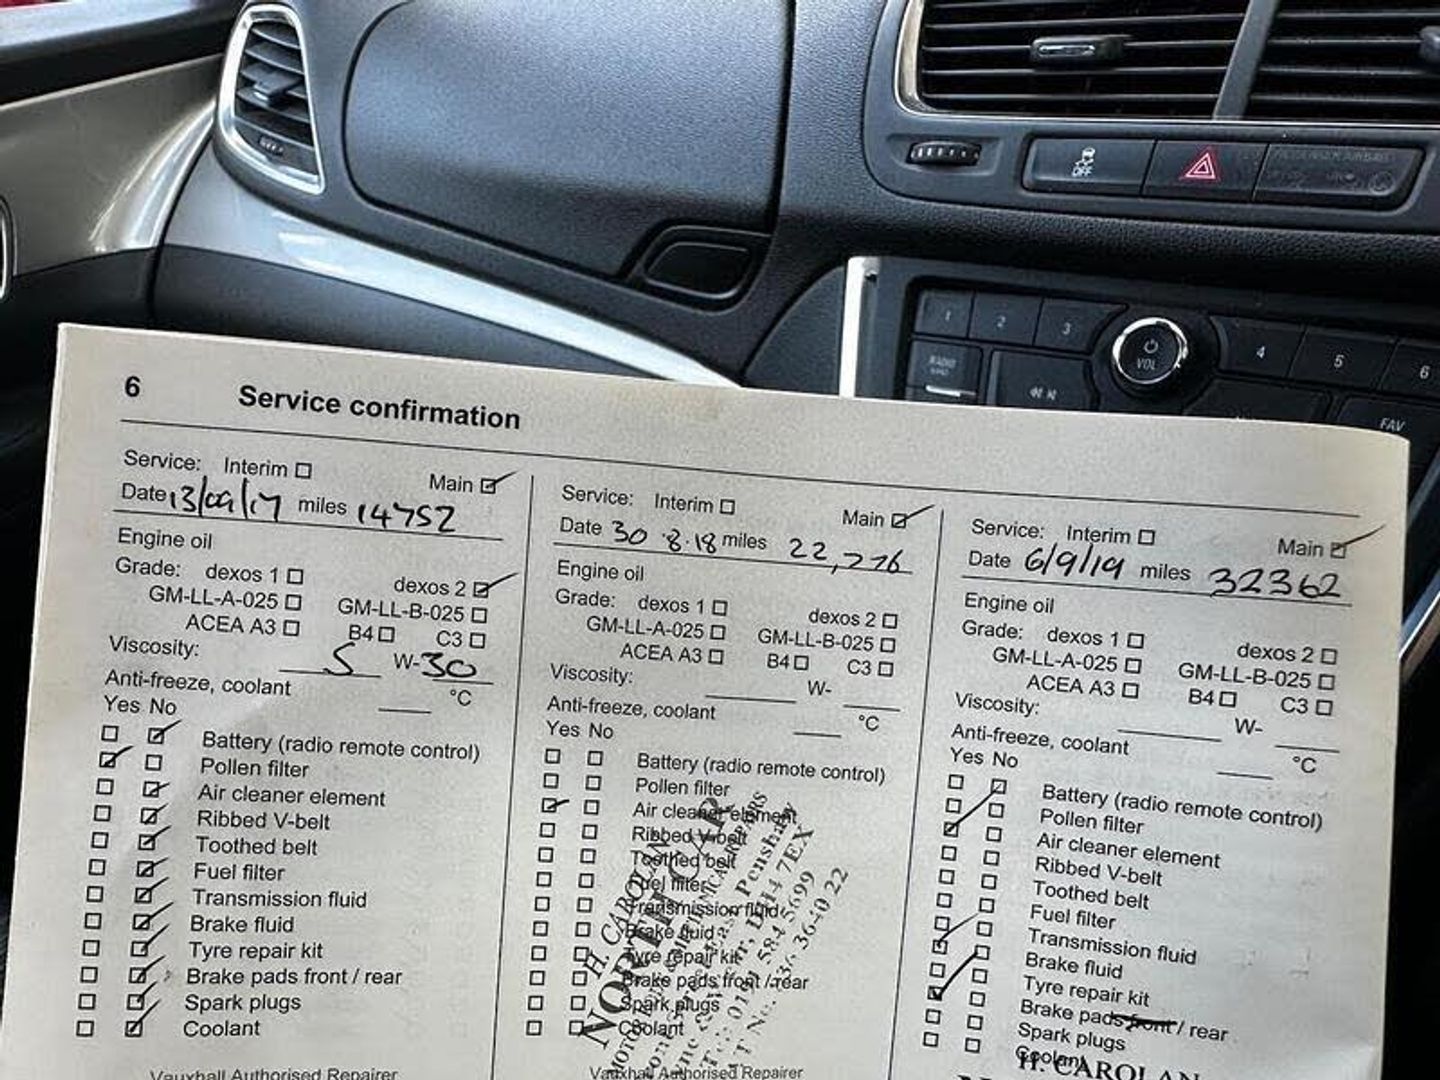 OFF
1
2
3
VOL
4
5
6
RADIO
FAV
6 Service confirmation
Service: Interim Main
Date 13/09/17 miles 14752
Engine oil
Grade: dexos 1 dexos 2
GM-LL-A-025 GM-LL-B-025
ACEA A3 B4 C3
Viscosity: 5 W-30
Anti-freeze, coolant °C
Yes No
Battery (radio remote control)
Pollen filter
Air cleaner element
Ribbed V-belt
Toothed belt
Fuel filter
Transmission fluid
Brake fluid
Tyre repair kit
Brake pads front / rear
Spark plugs
Coolant
Vauxhall Authorised Repairer
Service: Interim Main
Date 30.8.18 miles 22,776
Engine oil
Grade: dexos 1 dexos 2
GM-LL-A-025 GM-LL-B-025
ACEA A3 B4 C3
Viscosity: W-
Anti-freeze, coolant °C
Yes No
Battery (radio remote control)
Pollen filter
Air cleaner element
Ribbed V-belt
Toothed belt
Fuel filter
Transmission fluid
Brake fluid
Tyre repair kit
Brake pads front / rear
Spark plugs
Coolant
H. CAROLAN
NORTH CAR
Penshaw
DH4 7EX
584 5699
Vauxhall Authorised Repairer
Service: Interim Main
Date 6/9/19 miles 32362
Engine oil
Grade: dexos 1 dexos 2
GM-LL-A-025 GM-LL-B-025
ACEA A3 B4 C3
Viscosity: W-
Anti-freeze, coolant °C
Yes No
Battery (radio remote control)
Pollen filter
Air cleaner element
Ribbed V-belt
Toothed belt
Fuel filter
Transmission fluid
Brake fluid
Tyre repair kit
Brake pads front / rear
Spark plugs
Coolant
H. CAROLAN